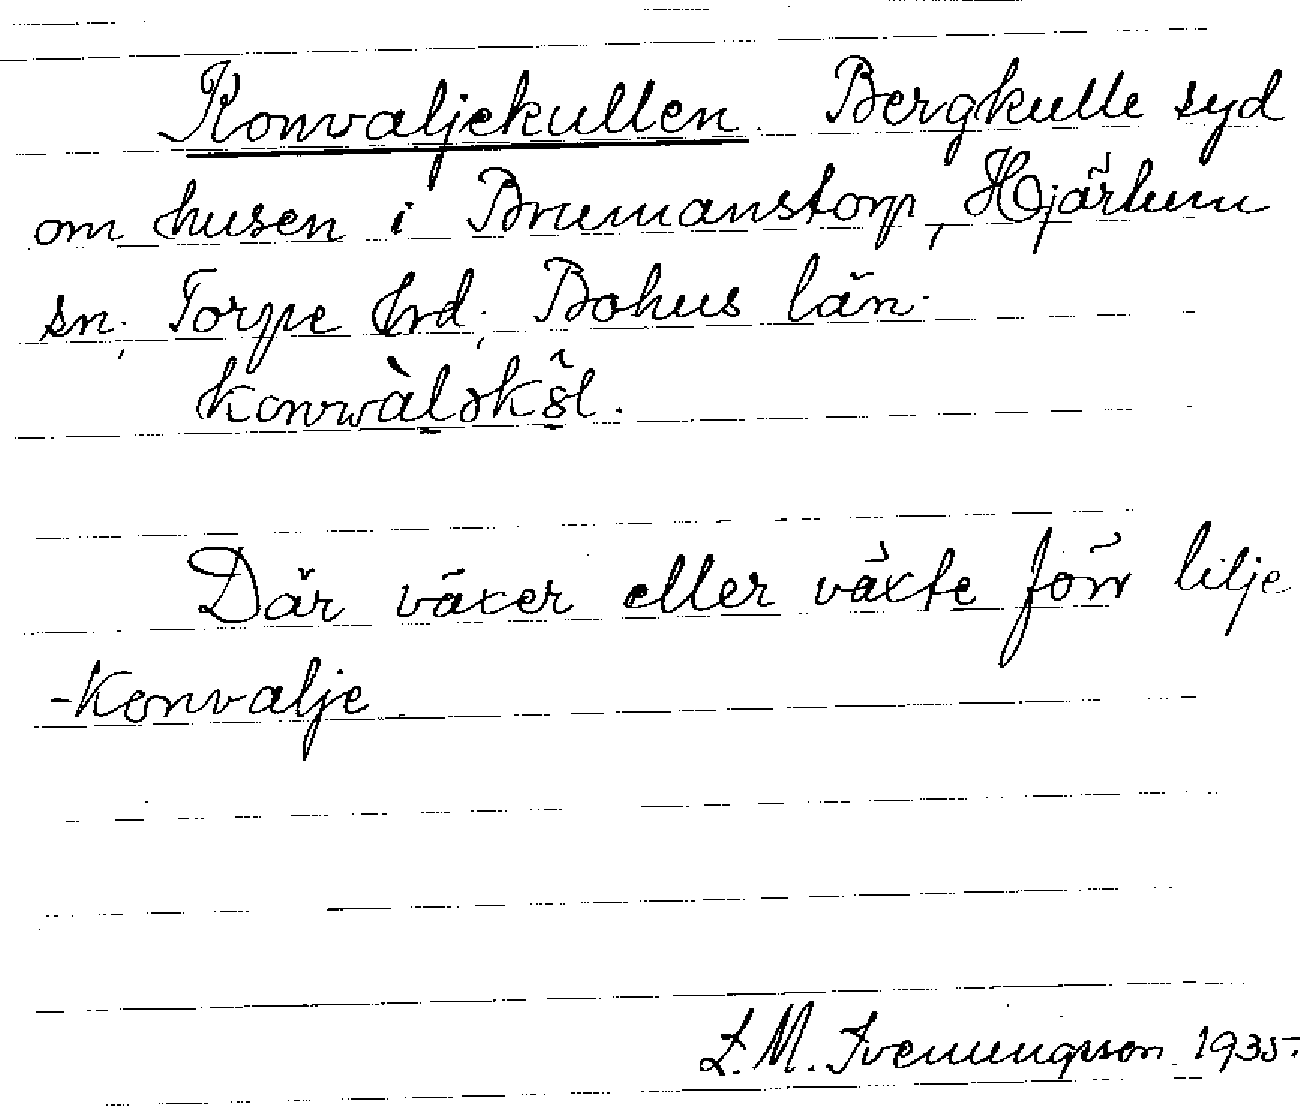 Konvaljekullen. Bergkulle syd
om husen i Brumanstorp, Hjärtum
sn; Torpe hrd; Bohus län.
Där växer eller växte förr lilje
-Konvalje
L. M. Svenungsson 1935.